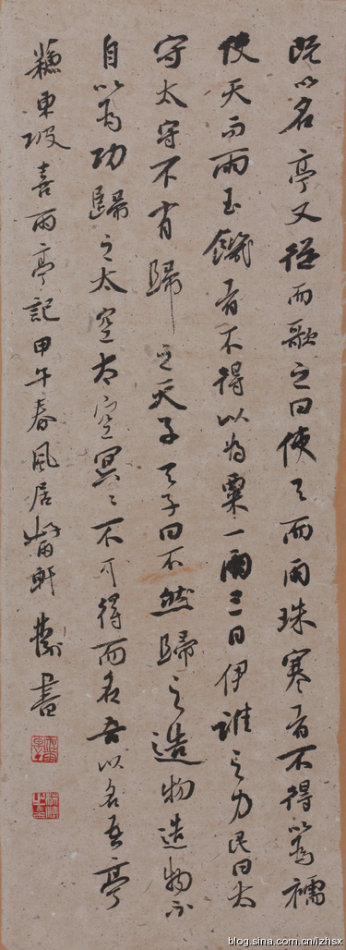 既以名亭又從而歌之曰使天而雨珠寒者不得以為襦
使天而雨玉饑者不得以為粟一雨三日伊誰之力民曰太
守太守不有歸之天子天子曰不然歸之造物造物不
自以為功歸之太空太空冥〻不可得而名吾以名吾亭
蘇東坡喜雨亭記甲午春風居軒書
blog.sina.com.cn/lzhsx